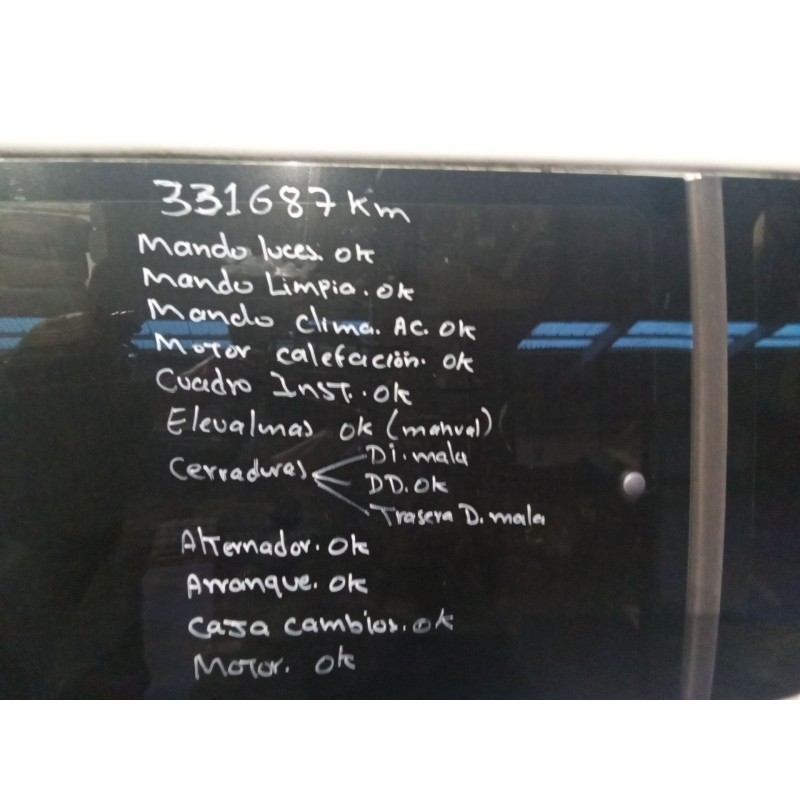 331687 km
Mando luces. ok
Mando Limpia. ok
Mando clima. AC. ok
Motor calefación. ok
Cuadro Inst.. ok
Elevalunas ok (manual)
Di. mala
Cerraduras
DD. ok
Trasera D. mala
Alternador. ok
Arranque. ok
Caja cambios. ok
Motor. ok